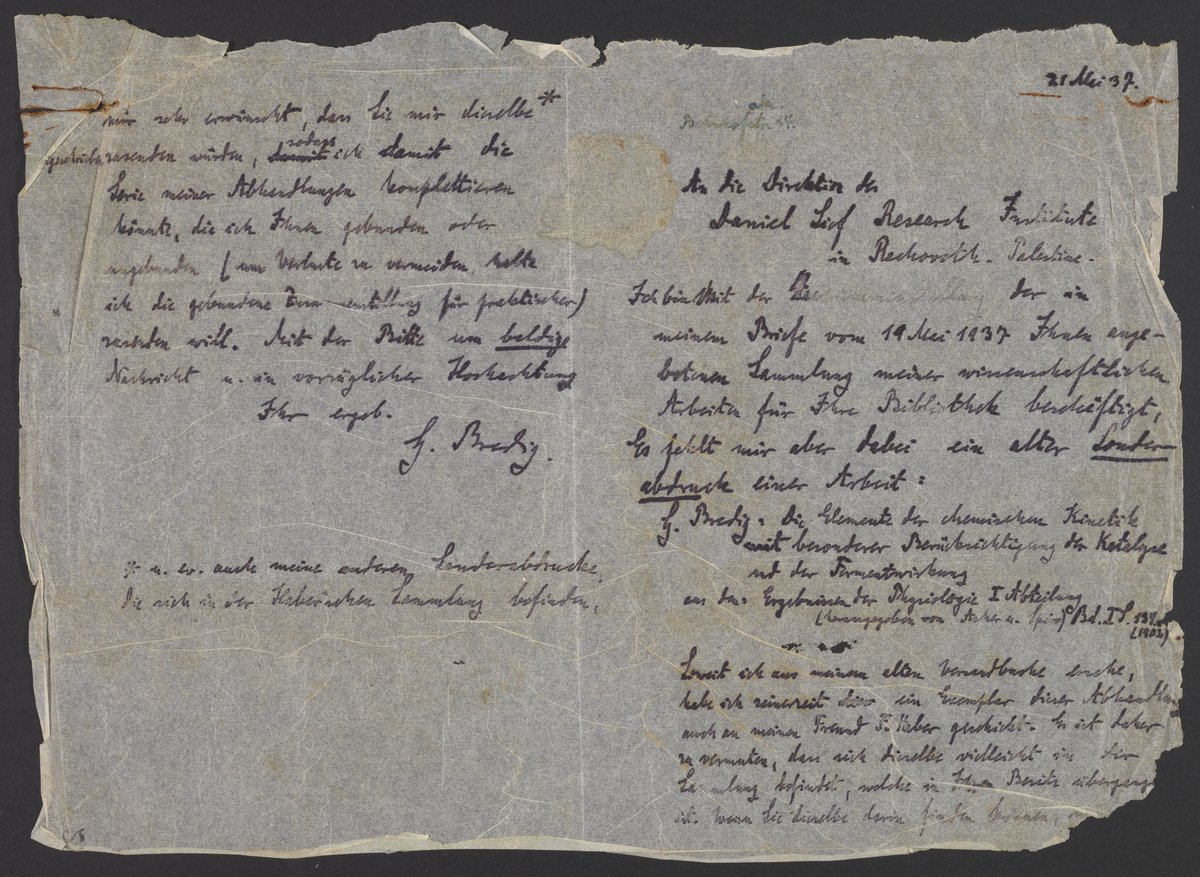 21 Mei 37.
An die Direktion des
Daniel Sief Research Institute
in Rechovoth. Palestine.
Ich bin mit der der in
meinem Briefe vom 19 Mei 1937 Ihnen ange-
botenen Sammlung meiner wissenschaftlichen
Arbeiten für Ihre Bibliothek beschäftigt,
Es fehlt mir aber dabei ein alter Sonder-
abdruck einer Arbeit:
G. Bredig: Die Elemente der chemischen Kinetik
mit besonderer Berücksichtigung der Katalyse
und der Fermentwirkung
aus den: Ergebnissen der Physiologie I Abteilung
(herausgegeben von Asher u. Spiro) Bd. I S. 134
(1902)
Soweit ich aus meinem alten Versandbuche ersehe,
habe ich seinerzeit ein Exemplar dieser Abhandlung
auch an meinen Freund F. Haber geschickt. Es ist daher
zu vermuten, dass sich dieselbe vielleicht in der
Sammlung befindet, welche in Ihren Besitz übergang
ist. Wenn Sie dieselbe darin finden können,
mir sehr erwünscht, dass Sie mir dieselbe *
zusenden würden, sodass ich damit die
Serie meiner Abhandlungen komplettieren
könnte, die ich Ihnen gebunden oder
ungebunden (um Verluste zu vermeiden, halte
ich die gebundene für praktischer)
zusenden will. Mit der Bitte um baldige
Nachricht u. in vorzüglicher Hochachtung
Ihr ergeb.
G. Bredig.
* u. ev. auch meine anderen Sonderabdrucke,
die sich in der Haber'schen Sammlung befinden.